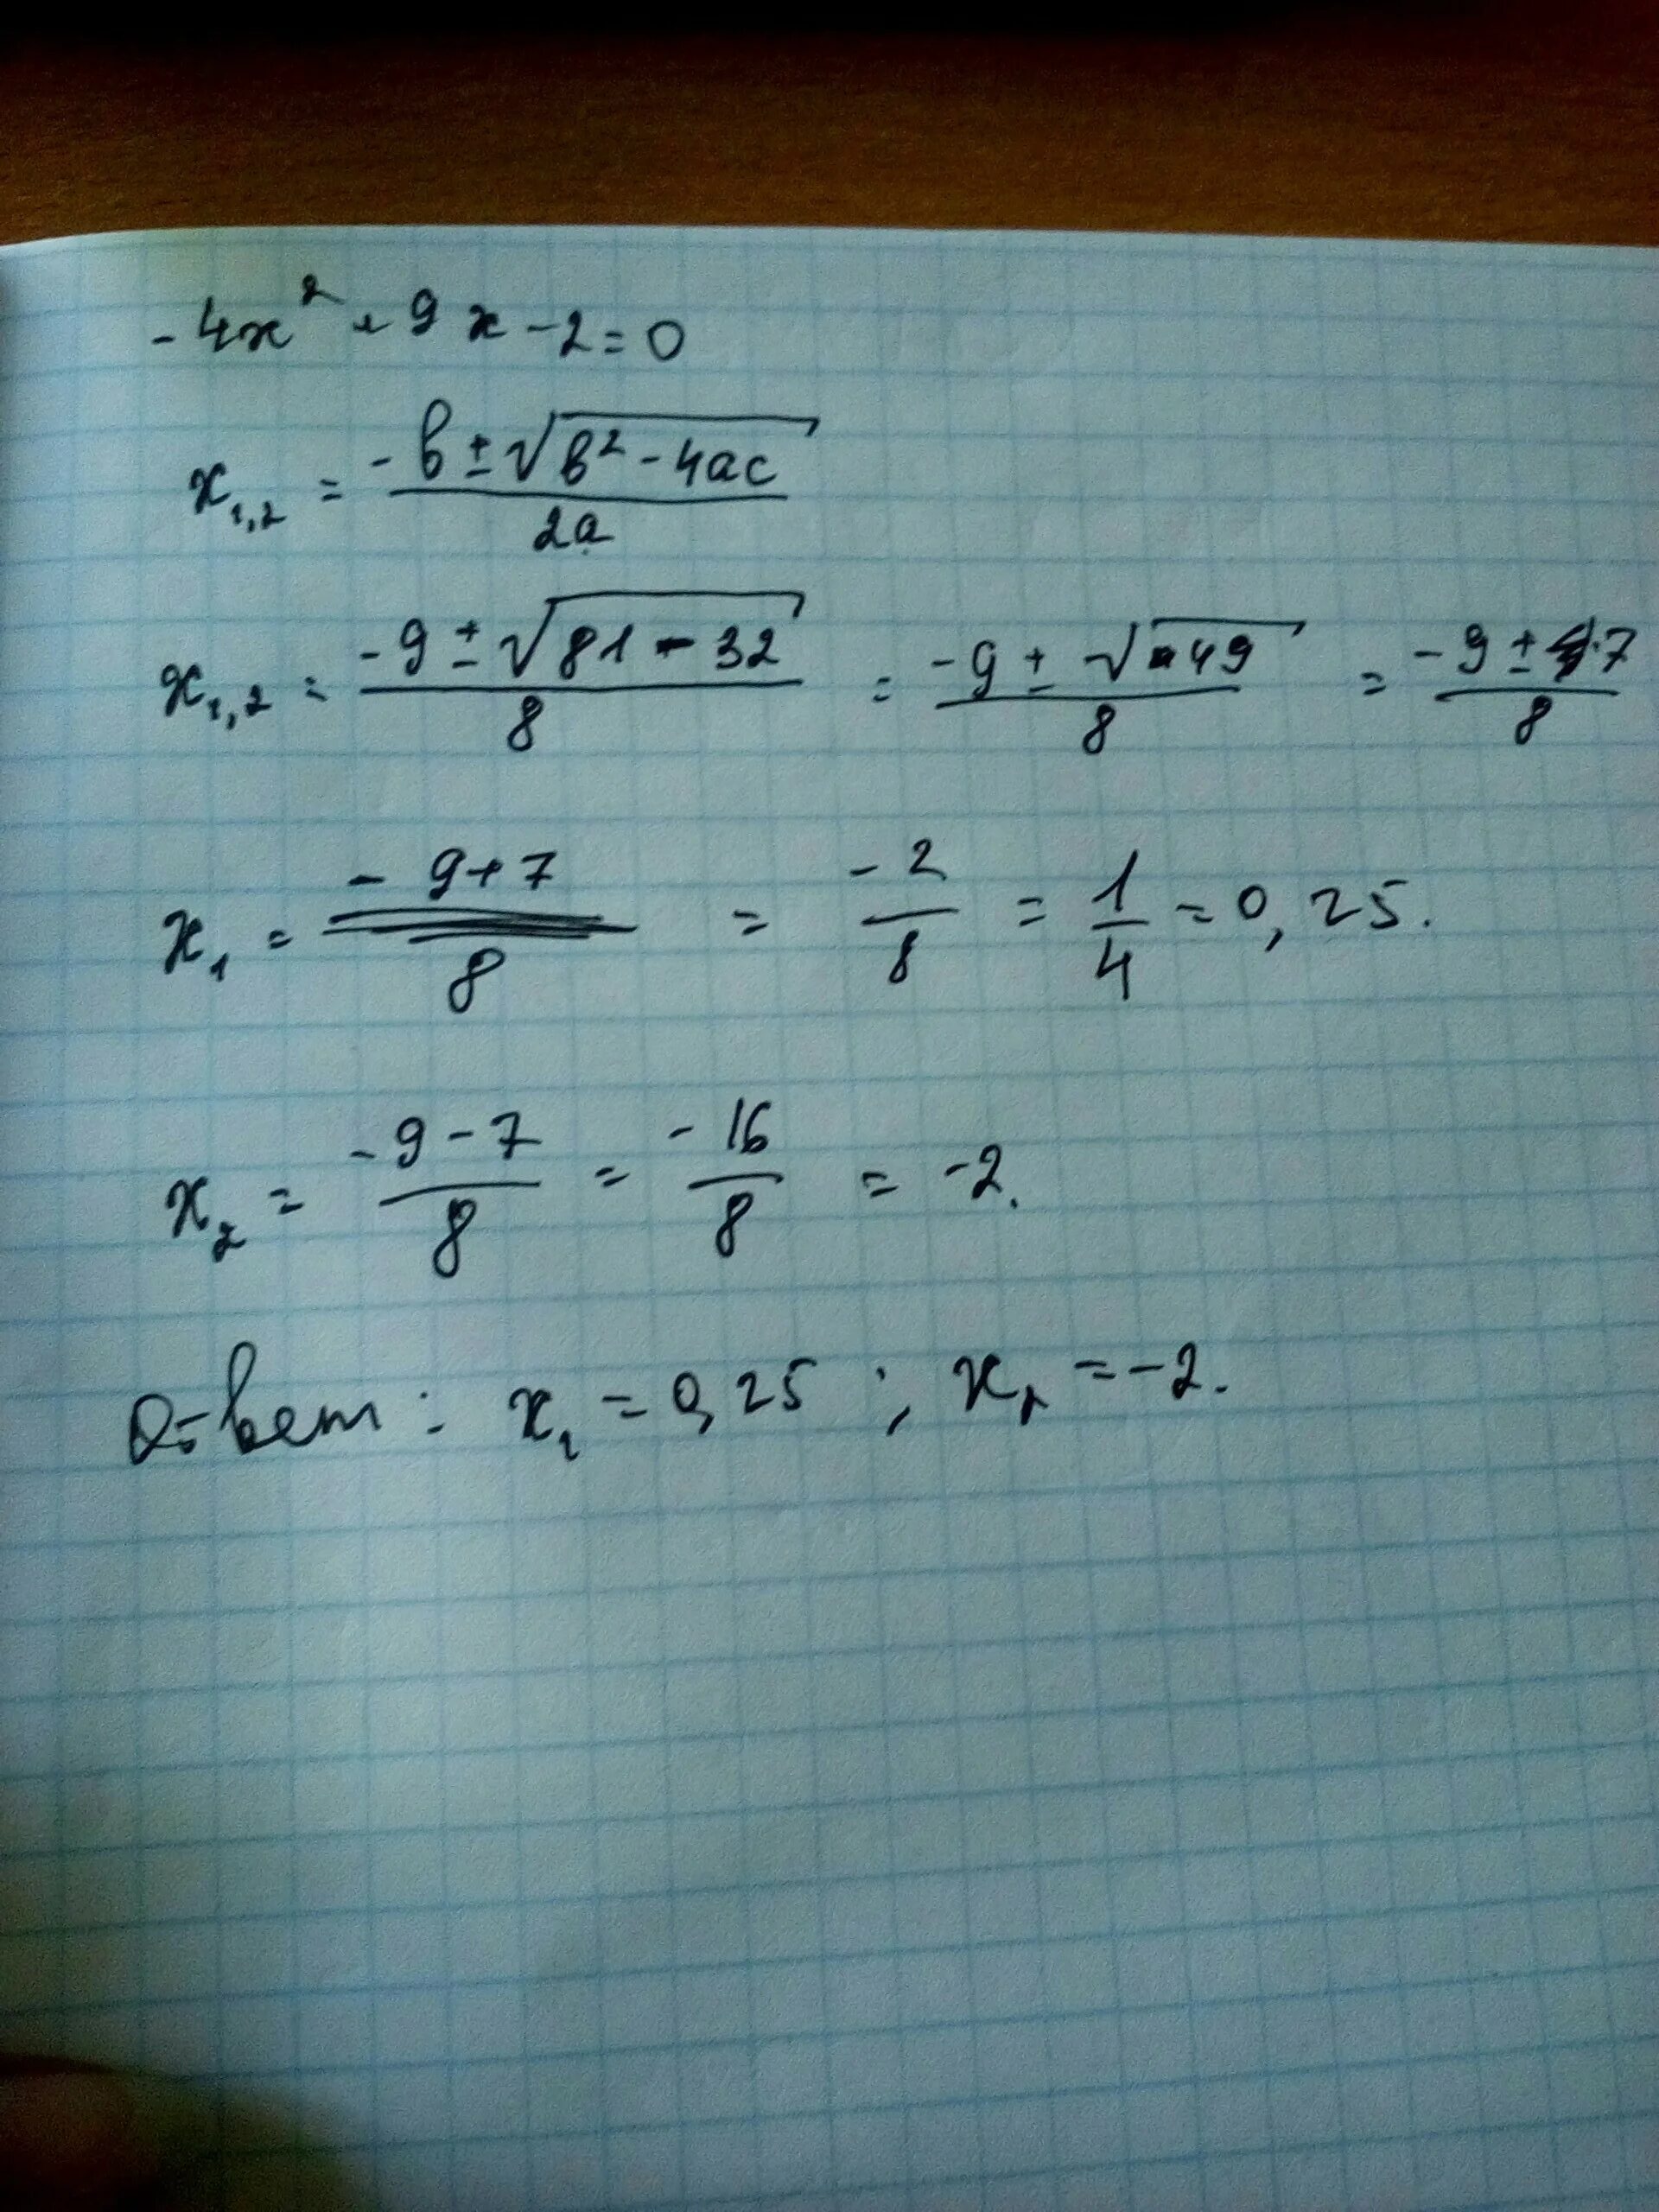 -4x² + 9x - 2 = 0
x₁,₂ = (-b ± √(b² - 4ac)) / 2a
x₁,₂ = (-9 ± √(81 - 32)) / 8 = (-9 ± √49) / 8 = (-9 ± 7) / 8
x₁ = (-9 + 7) / 8 = -2 / 8 = 1 / 4 = 0,25.
x₂ = (-9 - 7) / 8 = -16 / 8 = -2.
Ответ: x₁ = 0,25 ; x₂ = -2.